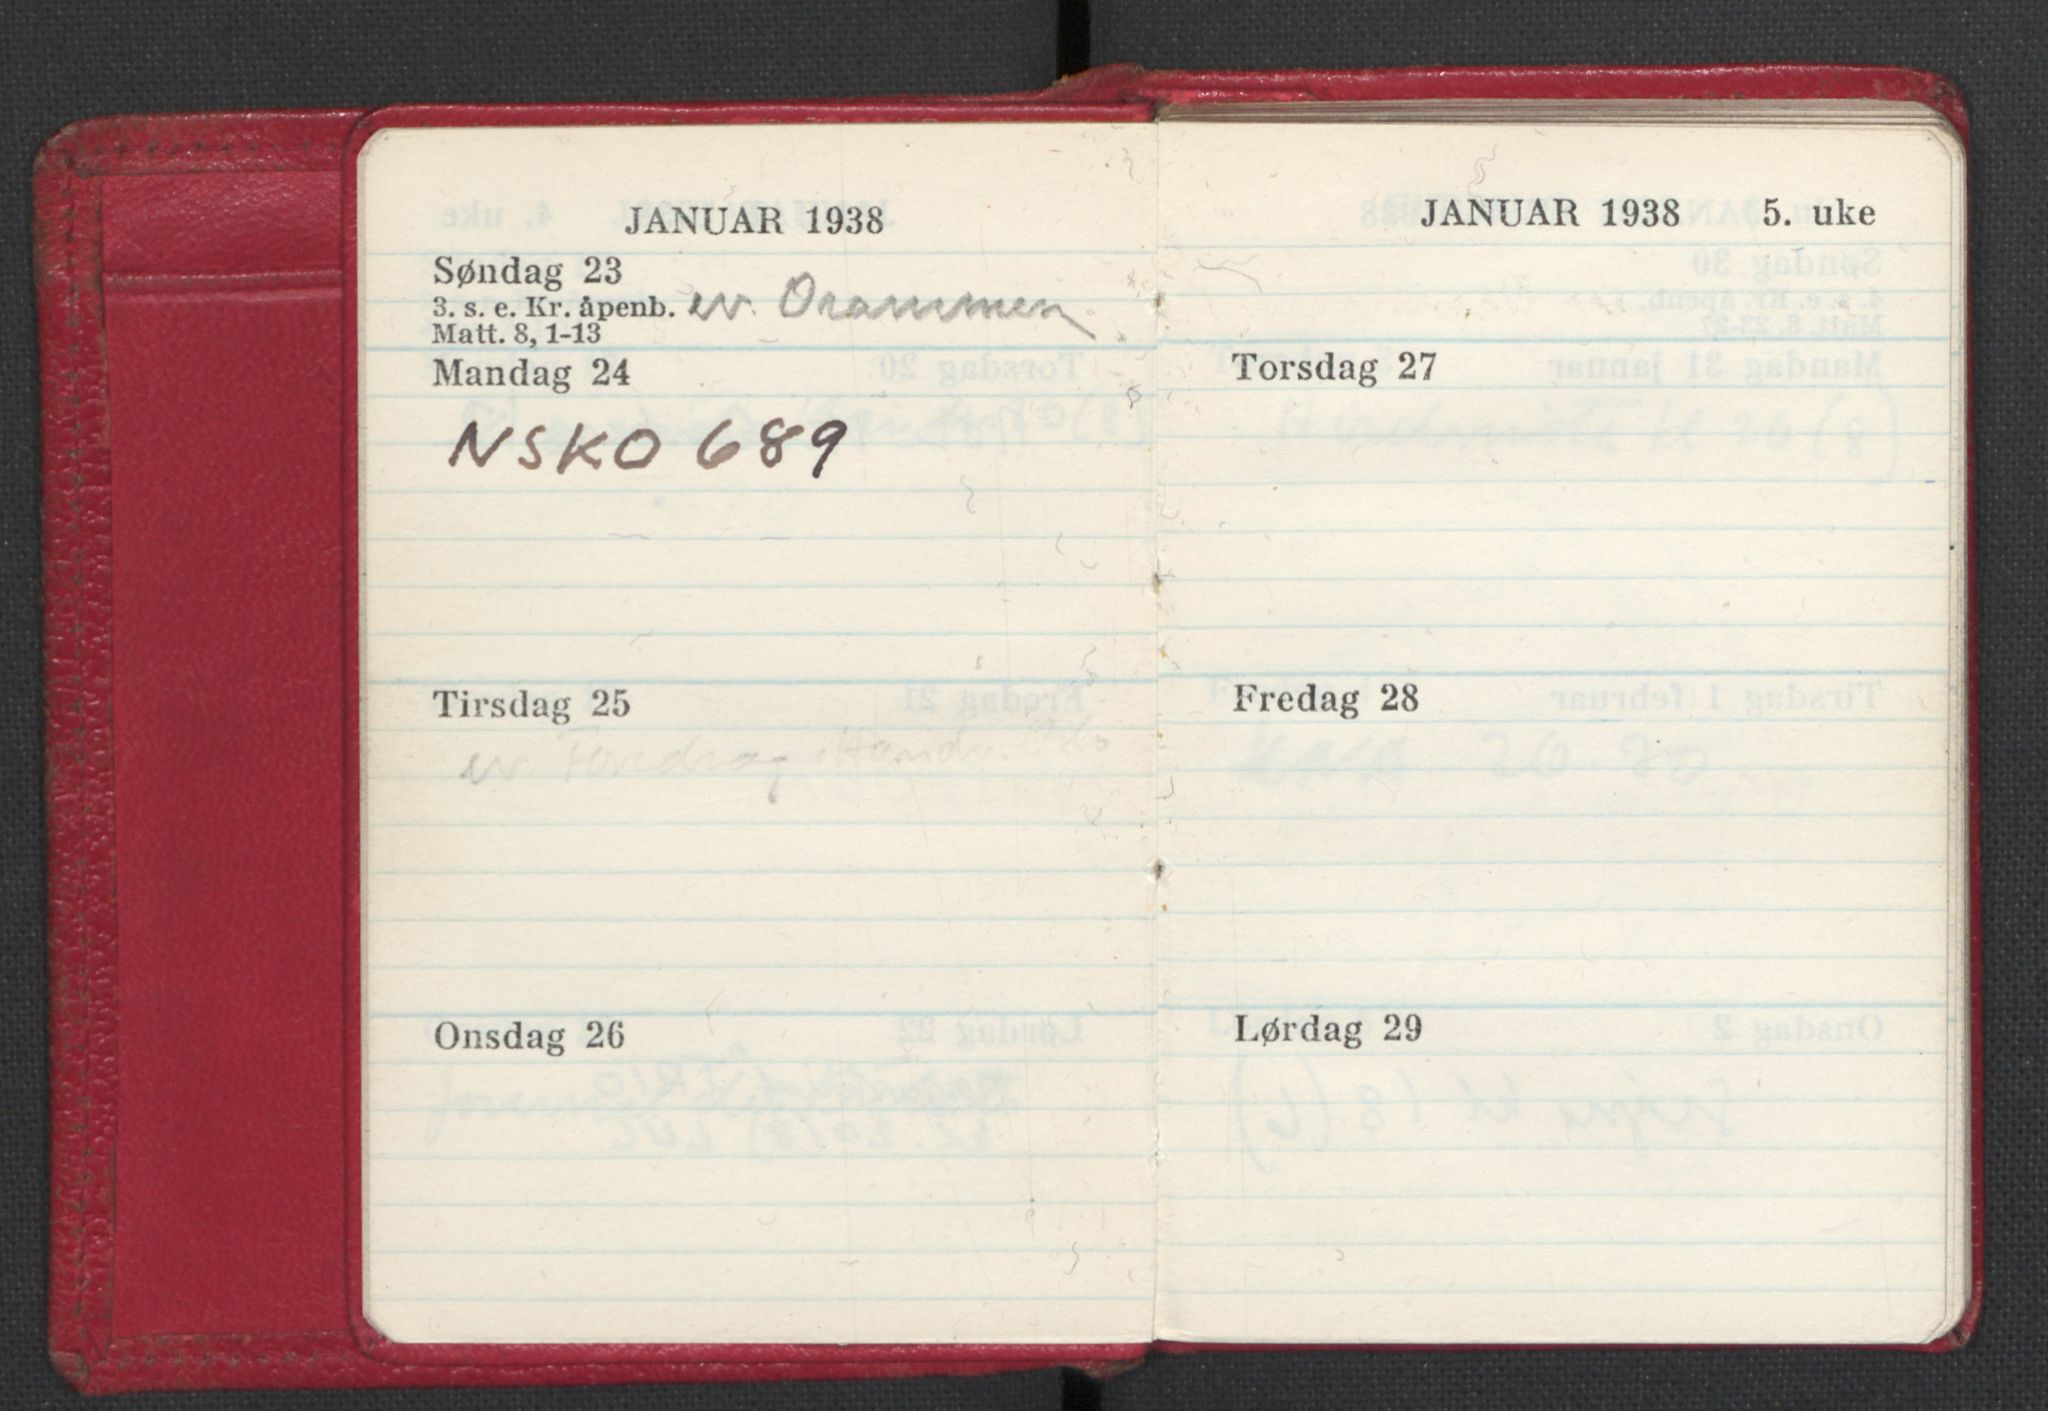 JANUAR 1938
Søndag 23
3. s. e. Kr. åpenb. ev. Drammen
Matt. 8, 1-13
Mandag 24
NSKO 689
Tirsdag 25
ev. Foredrag
Onsdag 26
JANUAR 1938 5. uke
Torsdag 27
Fredag 28
Lørdag 29